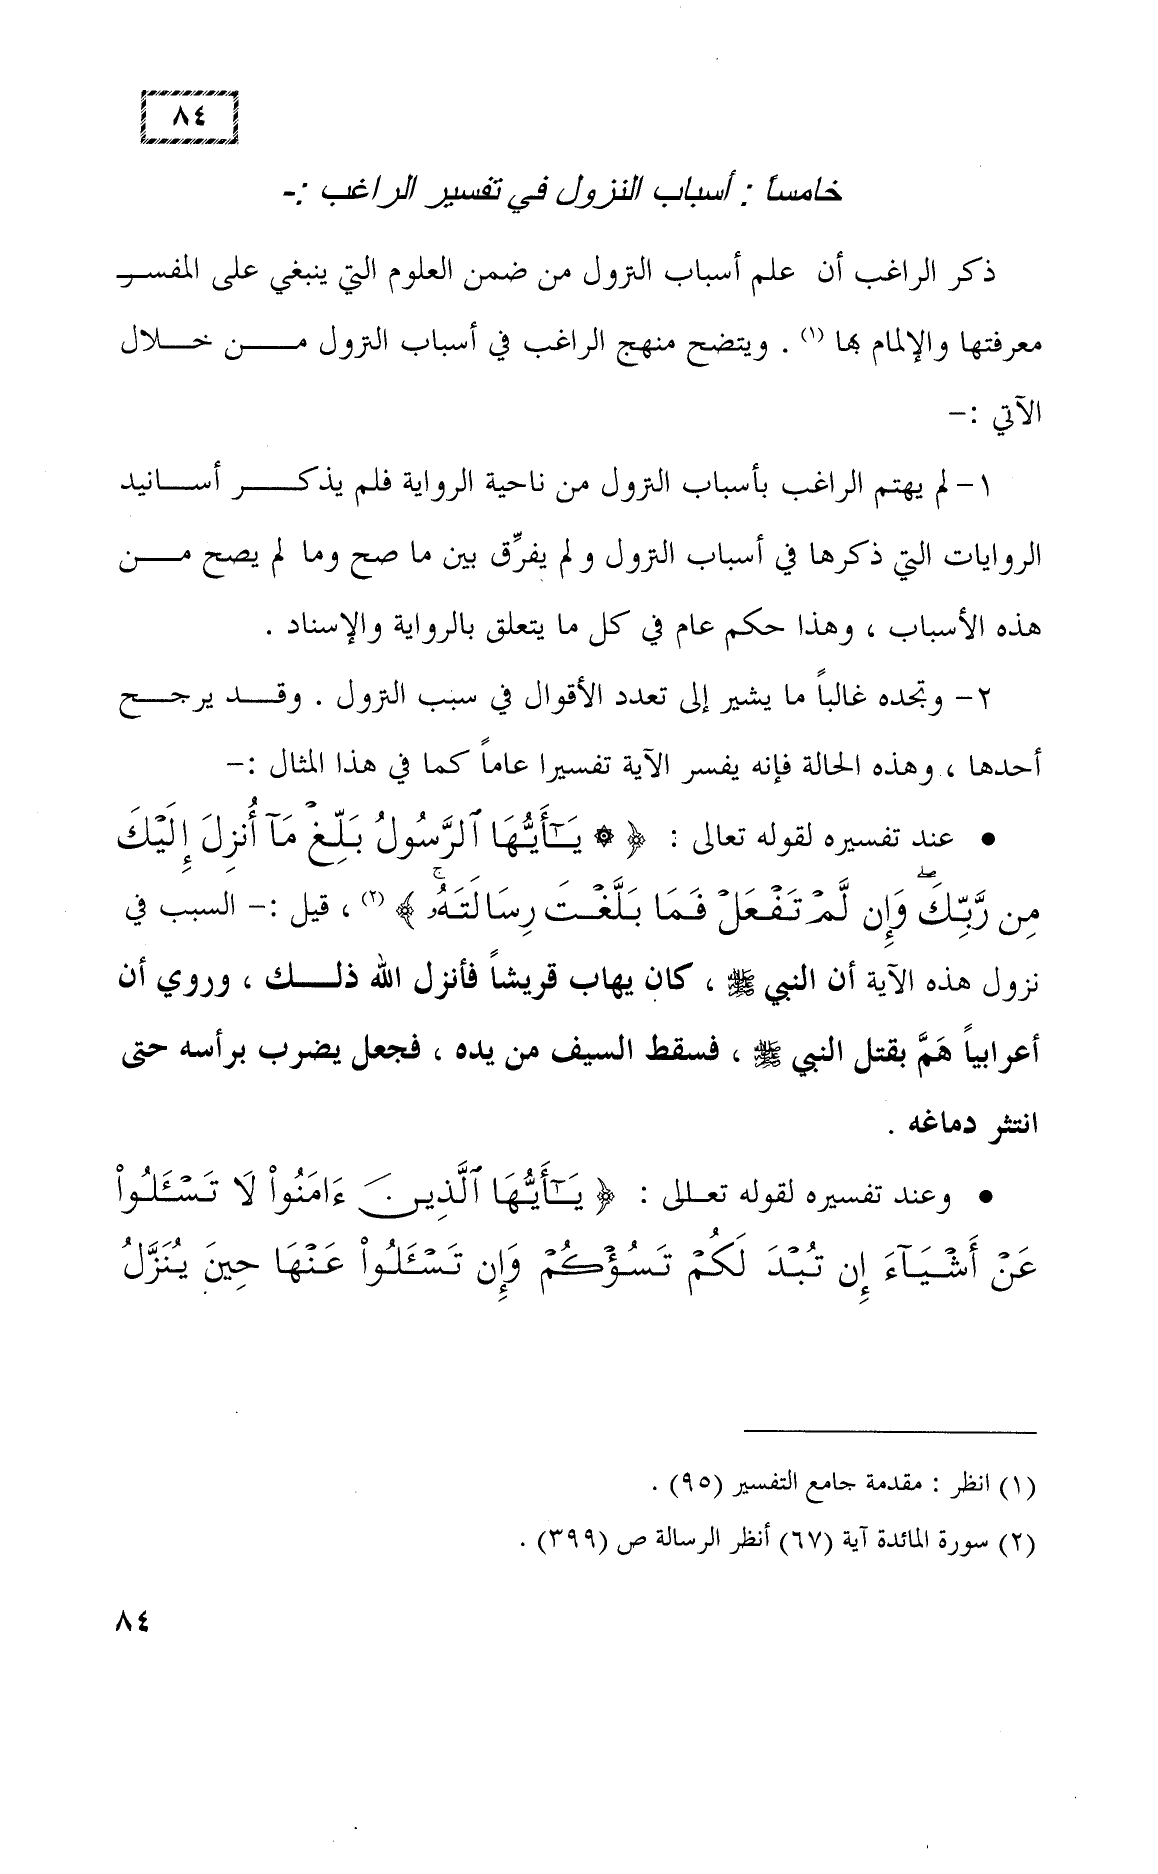 ٨٤
خامساً : أسباب النزول في تفسير الراغب :-
ذكر الراغب أن علم أسباب النزول من ضمن العلوم التي ينبغي على المفسر
معرفتها والإلمام بها (١) . ويتضح منهج الراغب في أسباب النزول من خلال
الآتي :-
١- لم يهتم الراغب بأسباب النزول من ناحية الرواية فلم يذكر أسانيد
الروايات التي ذكرها في أسباب النزول و لم يفرِّق بين ما صح وما لم يصح من
هذه الأسباب ، وهذا حكم عام في كل ما يتعلق بالرواية والإسناد .
٢- وتجده غالباً ما يشير إلى تعدد الأقوال في سبب النزول . وقد يرجح
أحدها ، وهذه الحالة فإنه يفسر الآية تفسيرا عاماً كما في هذا المثال :-
• عند تفسيره لقوله تعالى : ﴿ ۞ يَـٰٓأَيُّهَا ٱلرَّسُولُ بَلِّغْ مَآ أُنزِلَ إِلَيْكَ
مِن رَّبِّكَ ۖ وَإِن لَّمْ تَفْعَلْ فَمَا بَلَّغْتَ رِسَالَتَهُۥ ۚ ﴾ (٢) ، قيل :- السبب في
نزول هذه الآية أن النبي ﷺ ، كان يهاب قريشاً فأنزل الله ذلك ، وروي أن
أعرابياً هَمَّ بقتل النبي ﷺ ، فسقط السيف من يده ، فجعل يضرب برأسه حتى
انتثر دماغه .
• وعند تفسيره لقوله تعالى : ﴿ يَـٰٓأَيُّهَا ٱلَّذِينَ ءَامَنُوا۟ لَا تَسْـَٔلُوا۟
عَنْ أَشْيَآءَ إِن تُبْدَ لَكُمْ تَسُؤْكُمْ وَإِن تَسْـَٔلُوا۟ عَنْهَا حِينَ يُنَزَّلُ
(١) انظر : مقدمة جامع التفسير (٩٥) .
(٢) سورة المائدة آية (٦٧) أنظر الرسالة ص (٣٩٩) .
٨٤